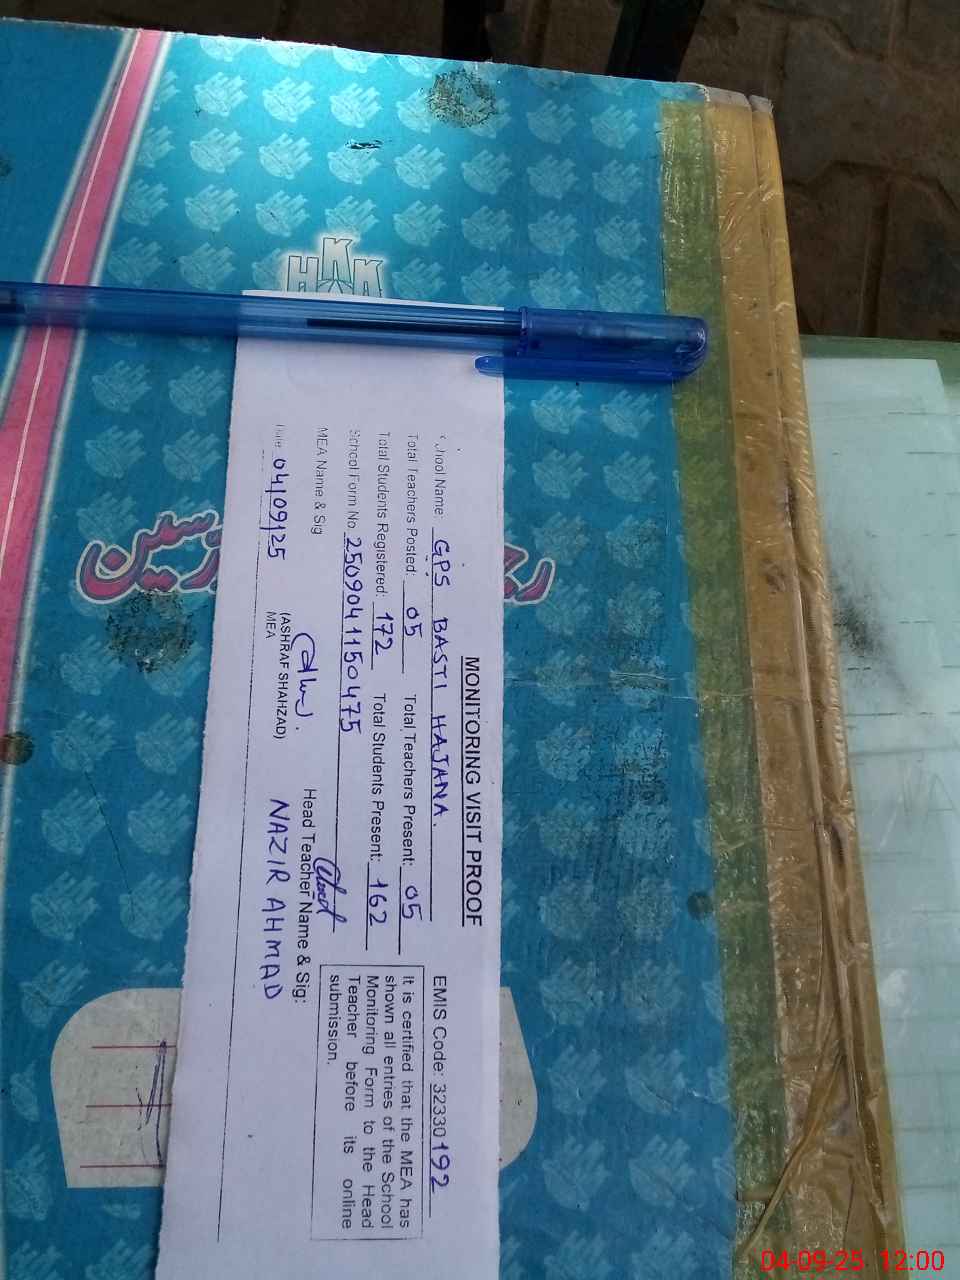 HKKK
MONITORING VISIT PROOF
School Name: GPS BASTI HAJANA. EMIS Code: 32330192
Total Teachers Posted: 05 Total Teachers Present: 05
Total Students Registered: 172 Total Students Present: 162
School Form No. 2509041150475
MEA Name & Sig Head Teacher Name & Sig:
(ASHRAF SHAHZAD)
MEA
NAZIR AHMAD
Date 04/09/25
It is certified that the MEA has
shown all entries of the School
Monitoring Form to the Head
Teacher before its online
submission.
04-09-25 12:00